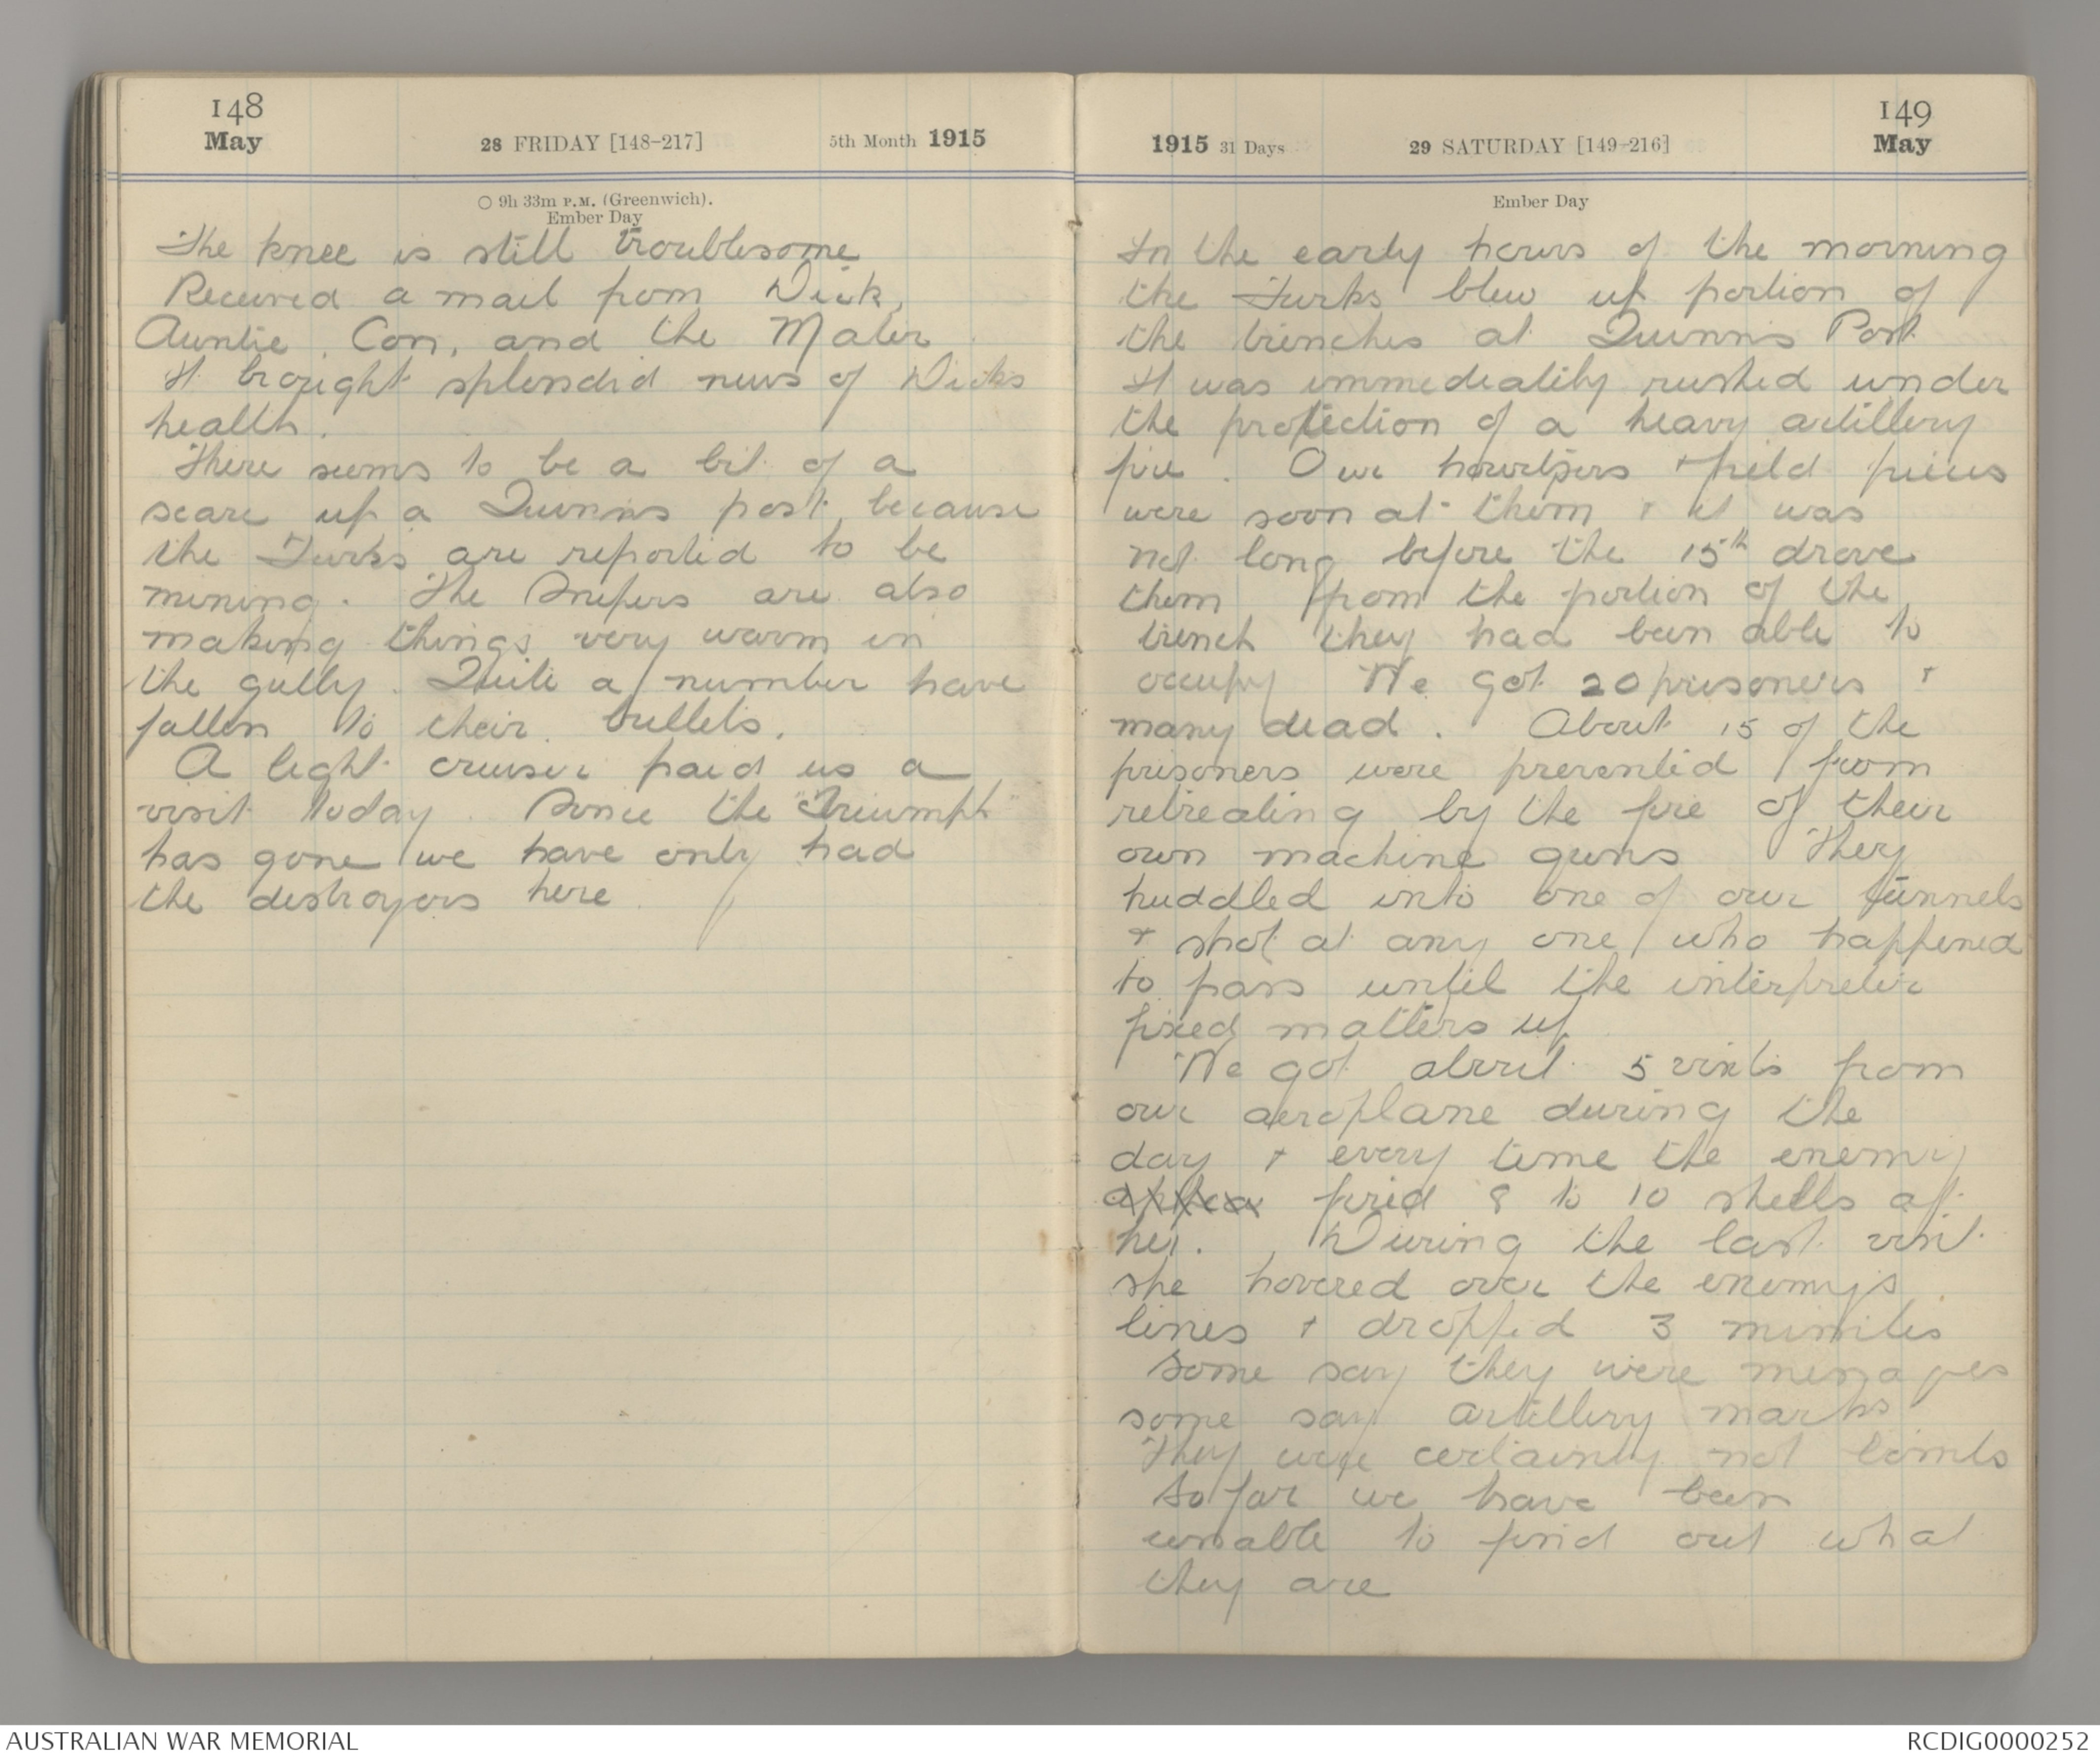 148
May
28 FRIDAY [148-217]
5th Month 1915
○ 9h 33m P.M. (Greenwich).
Ember Day
The knee is still troublesome
Received a mail from Dick,
Auntie, Con, and the Mater
It brought splendid news of Dicks
health.
There seems to be a bit of a
scare up a Quinns post, because
the Turks are reported to be
mining. The Snipers are also
making things very warm in
the gully. Quite a number have
fallen to their bullets.
A light cruiser paid us a
visit today. Since the "Triumph"
has gone we have only had
the destroyers here.
149
May
1915 31 Days
29 SATURDAY [149-216]
Ember Day
In the early hours of the morning
the Turks blew up portion of
the trenches at Quinns Post
It was immediatily rushed under
the protection of a heavy artillery
fire. Our howitzers + field pieces
were soon at them + it was
not long before the 15th drove
them from the portion of the
trench they had been able to
occupy We got 20 prisoners +
many dead. About 15 of the
prisoners were prevented from
retreating by the fire of their
own machine guns They
huddled into one of our tunnels
+ shot at any one who happened
to pass until the interpreter
fixed matters up.
We got about 5 visits from
our aeroplane during the
day + every time the enemy
fired 8 to 10 shells at
her. During the last visit
she hovered over the enemys
lines + dropped 3
some say they were messages
some say artillery marks
They were certainly not bombs
So far we have been
unable to find out what
they are
AUSTRALIAN WAR MEMORIAL
RCDIG0000252